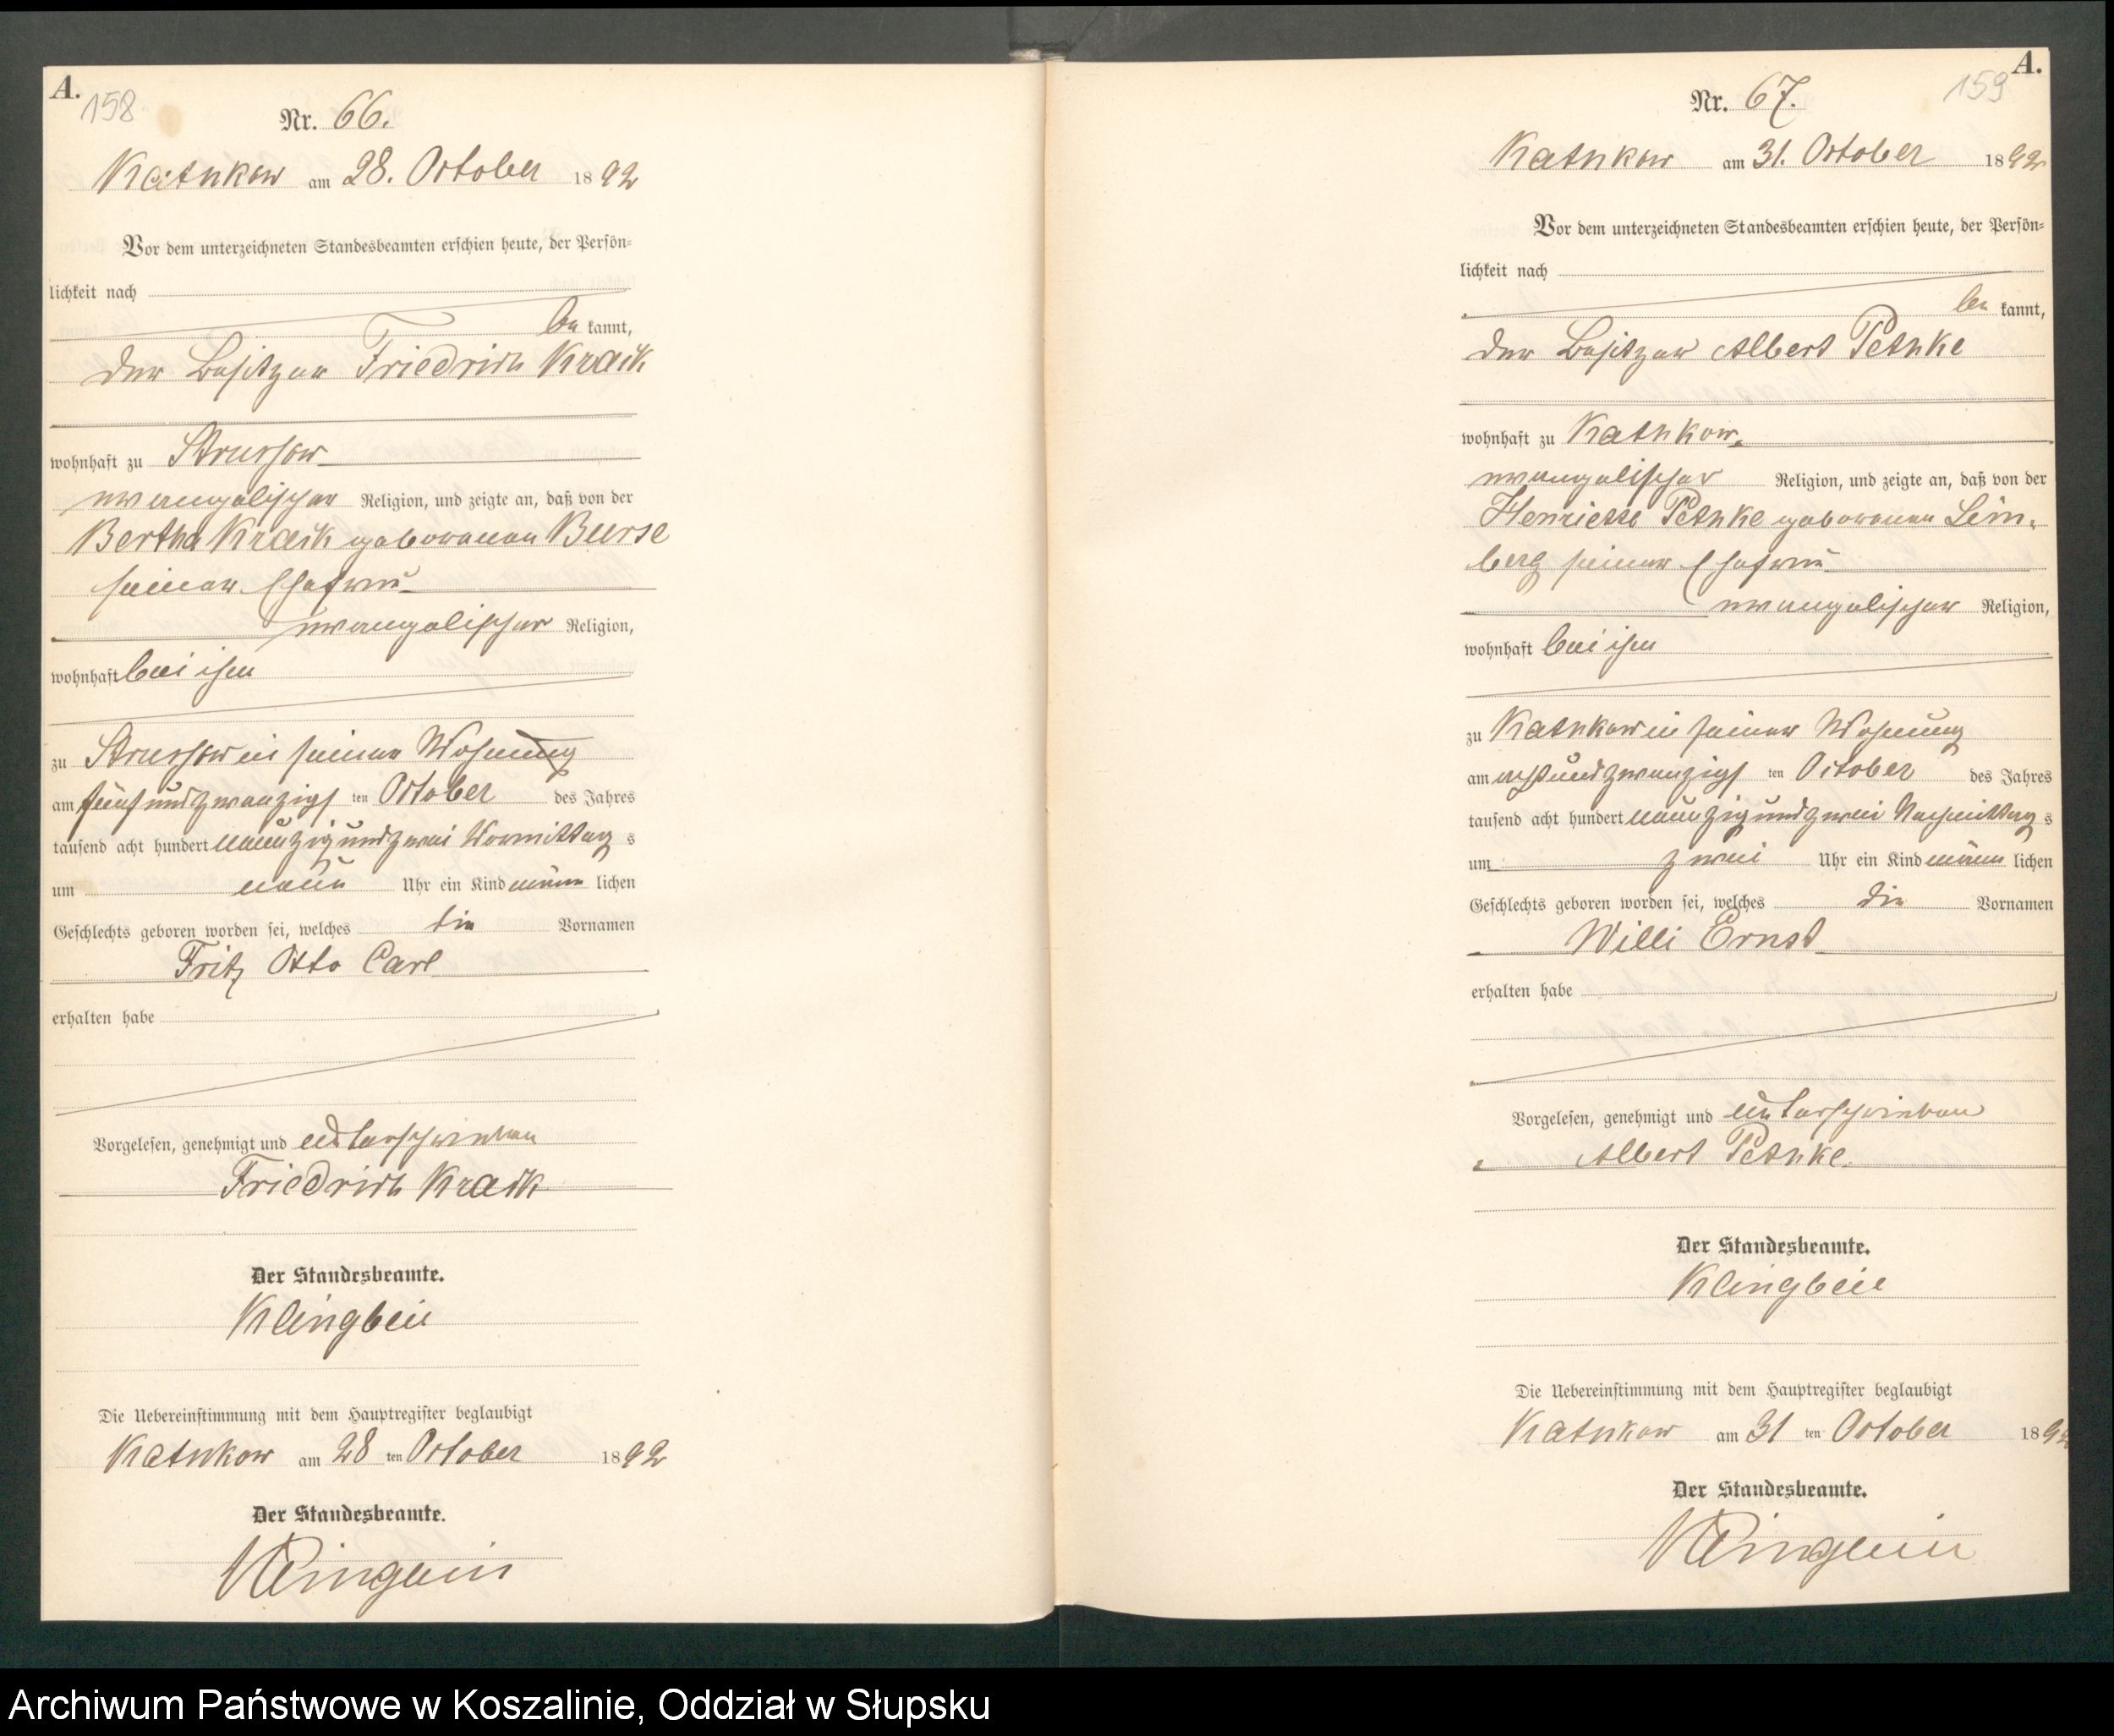 A.
158
Nr. 66.
Kathkow am 28. October 1892
Vor dem unterzeichneten Standesbeamten erschien heute, der Persön=
lichkeit nach
be kannt,
der Besitzer Friedrich Krack
wohnhaft zu Strussow
evangelischer Religion, und zeigte an, daß von der
Bertha Krack geborenen Busse
seiner Ehefrau
evangelischer Religion,
wohnhaft bei ihm
zu Strussow in seiner Wohnung
am fünf und zwanzigs ten October des Jahres
tausend acht hundert neunzig und zwei Vormittag s
um neun Uhr ein Kind männ lichen
Geschlechts geboren worden sei, welches die Vornamen
Fritz Otto Carl
erhalten habe
Vorgelesen, genehmigt und unterschrieben
Friedrich Krack
Der Standesbeamte.
Klingbeil
Die Uebereinstimmung mit dem Hauptregister beglaubigt
Kathkow am 28 ten October 1892
Der Standesbeamte.
Klingbeil
A.
159
Nr. 67.
Kathkow am 31. October 1892
Vor dem unterzeichneten Standesbeamten erschien heute, der Persön=
lichkeit nach
be kannt,
der Besitzer Albert Pethke
wohnhaft zu Kathkow
evangelischer Religion, und zeigte an, daß von der
Henriette Pethke geborenen Lem=
berg seiner Ehefrau
evangelischer Religion,
wohnhaft bei ihm
zu Kathkow in seiner Wohnung
am acht und zwanzigs ten October des Jahres
tausend acht hundert neunzig und zwei Nachmittag s
um zwei Uhr ein Kind männ lichen
Geschlechts geboren worden sei, welches die Vornamen
Willi Ernst
erhalten habe
Vorgelesen, genehmigt und unterschrieben
Albert Pethke.
Der Standesbeamte.
Klingbeil
Die Uebereinstimmung mit dem Hauptregister beglaubigt
Kathkow am 31 ten October 1892
Der Standesbeamte.
Klingbeil
Archiwum Państwowe w Koszalinie, Oddział w Słupsku